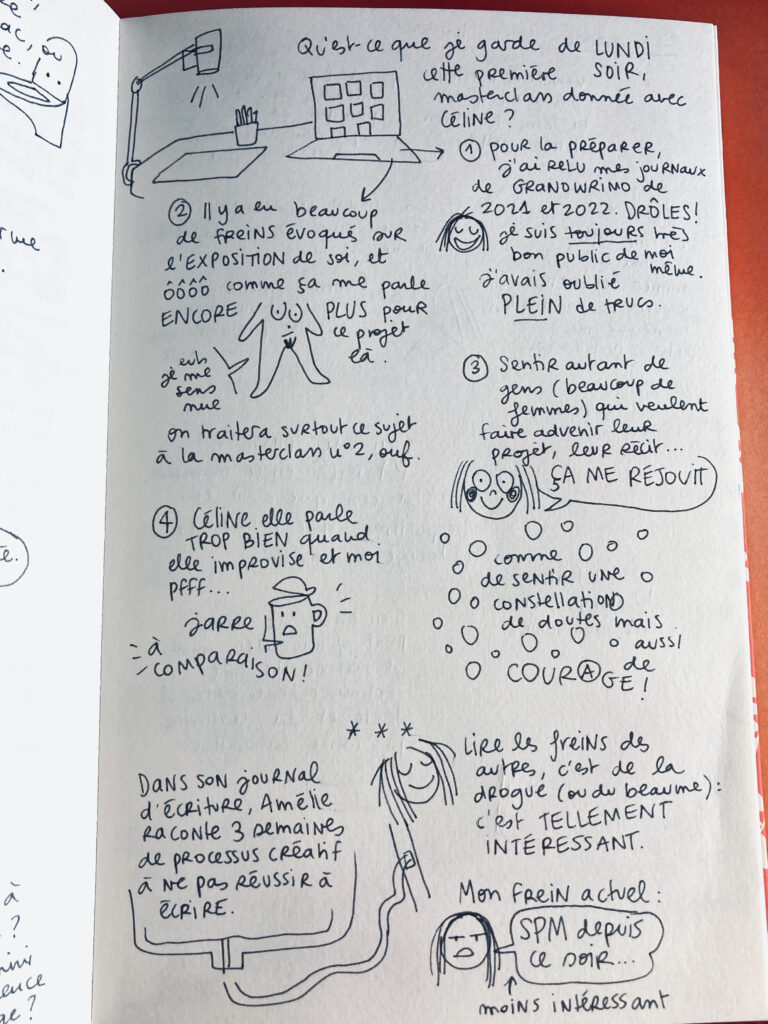 Qu'est-ce que je garde de LUNDI
cette première SOIR,
masterclass donnée avec
Céline ?
① POUR LA PRÉPARER,
J'AI RELU MES JOURNAUX
DE GRANOWRIMO DE
2021 et 2022. DRÔLES !
je suis toujours très
bon public de moi
même.
j'avais oublié
PLEIN de trucs.
② Il y a eu beaucoup
de freins évoqués sur
l'EXPOSITION de soi, et
ôôôô comme ça me parle
ENCORE PLUS pour
ce projet
là.
euh
je me
sens
nue
on traitera surtout ce sujet
à la masterclass n°2, ouf.
③ Sentir autant de
gens (beaucoup de
femmes) qui veulent
faire advenir leur
projet, leur récit...
ÇA ME RÉJOUIT
comme
de sentir une
constellation
de doutes mais
aussi
de
COURAGE !
④ Céline elle parle
TROP BIEN quand
elle improvise et moi
pfff...
jarre
à
COMPARAISON !
* * *
Lire les freins des
autres, c'est de la
drogue (ou du beaume) :
c'est TELLEMENT
INTÉRESSANT.
DANS SON journal
d'écriture, Amélie
raconte 3 semaines
de processus créatif
à ne pas réussir à
écrire.
Mon frein actuel :
SPM depuis
ce soir...
moins intéressant